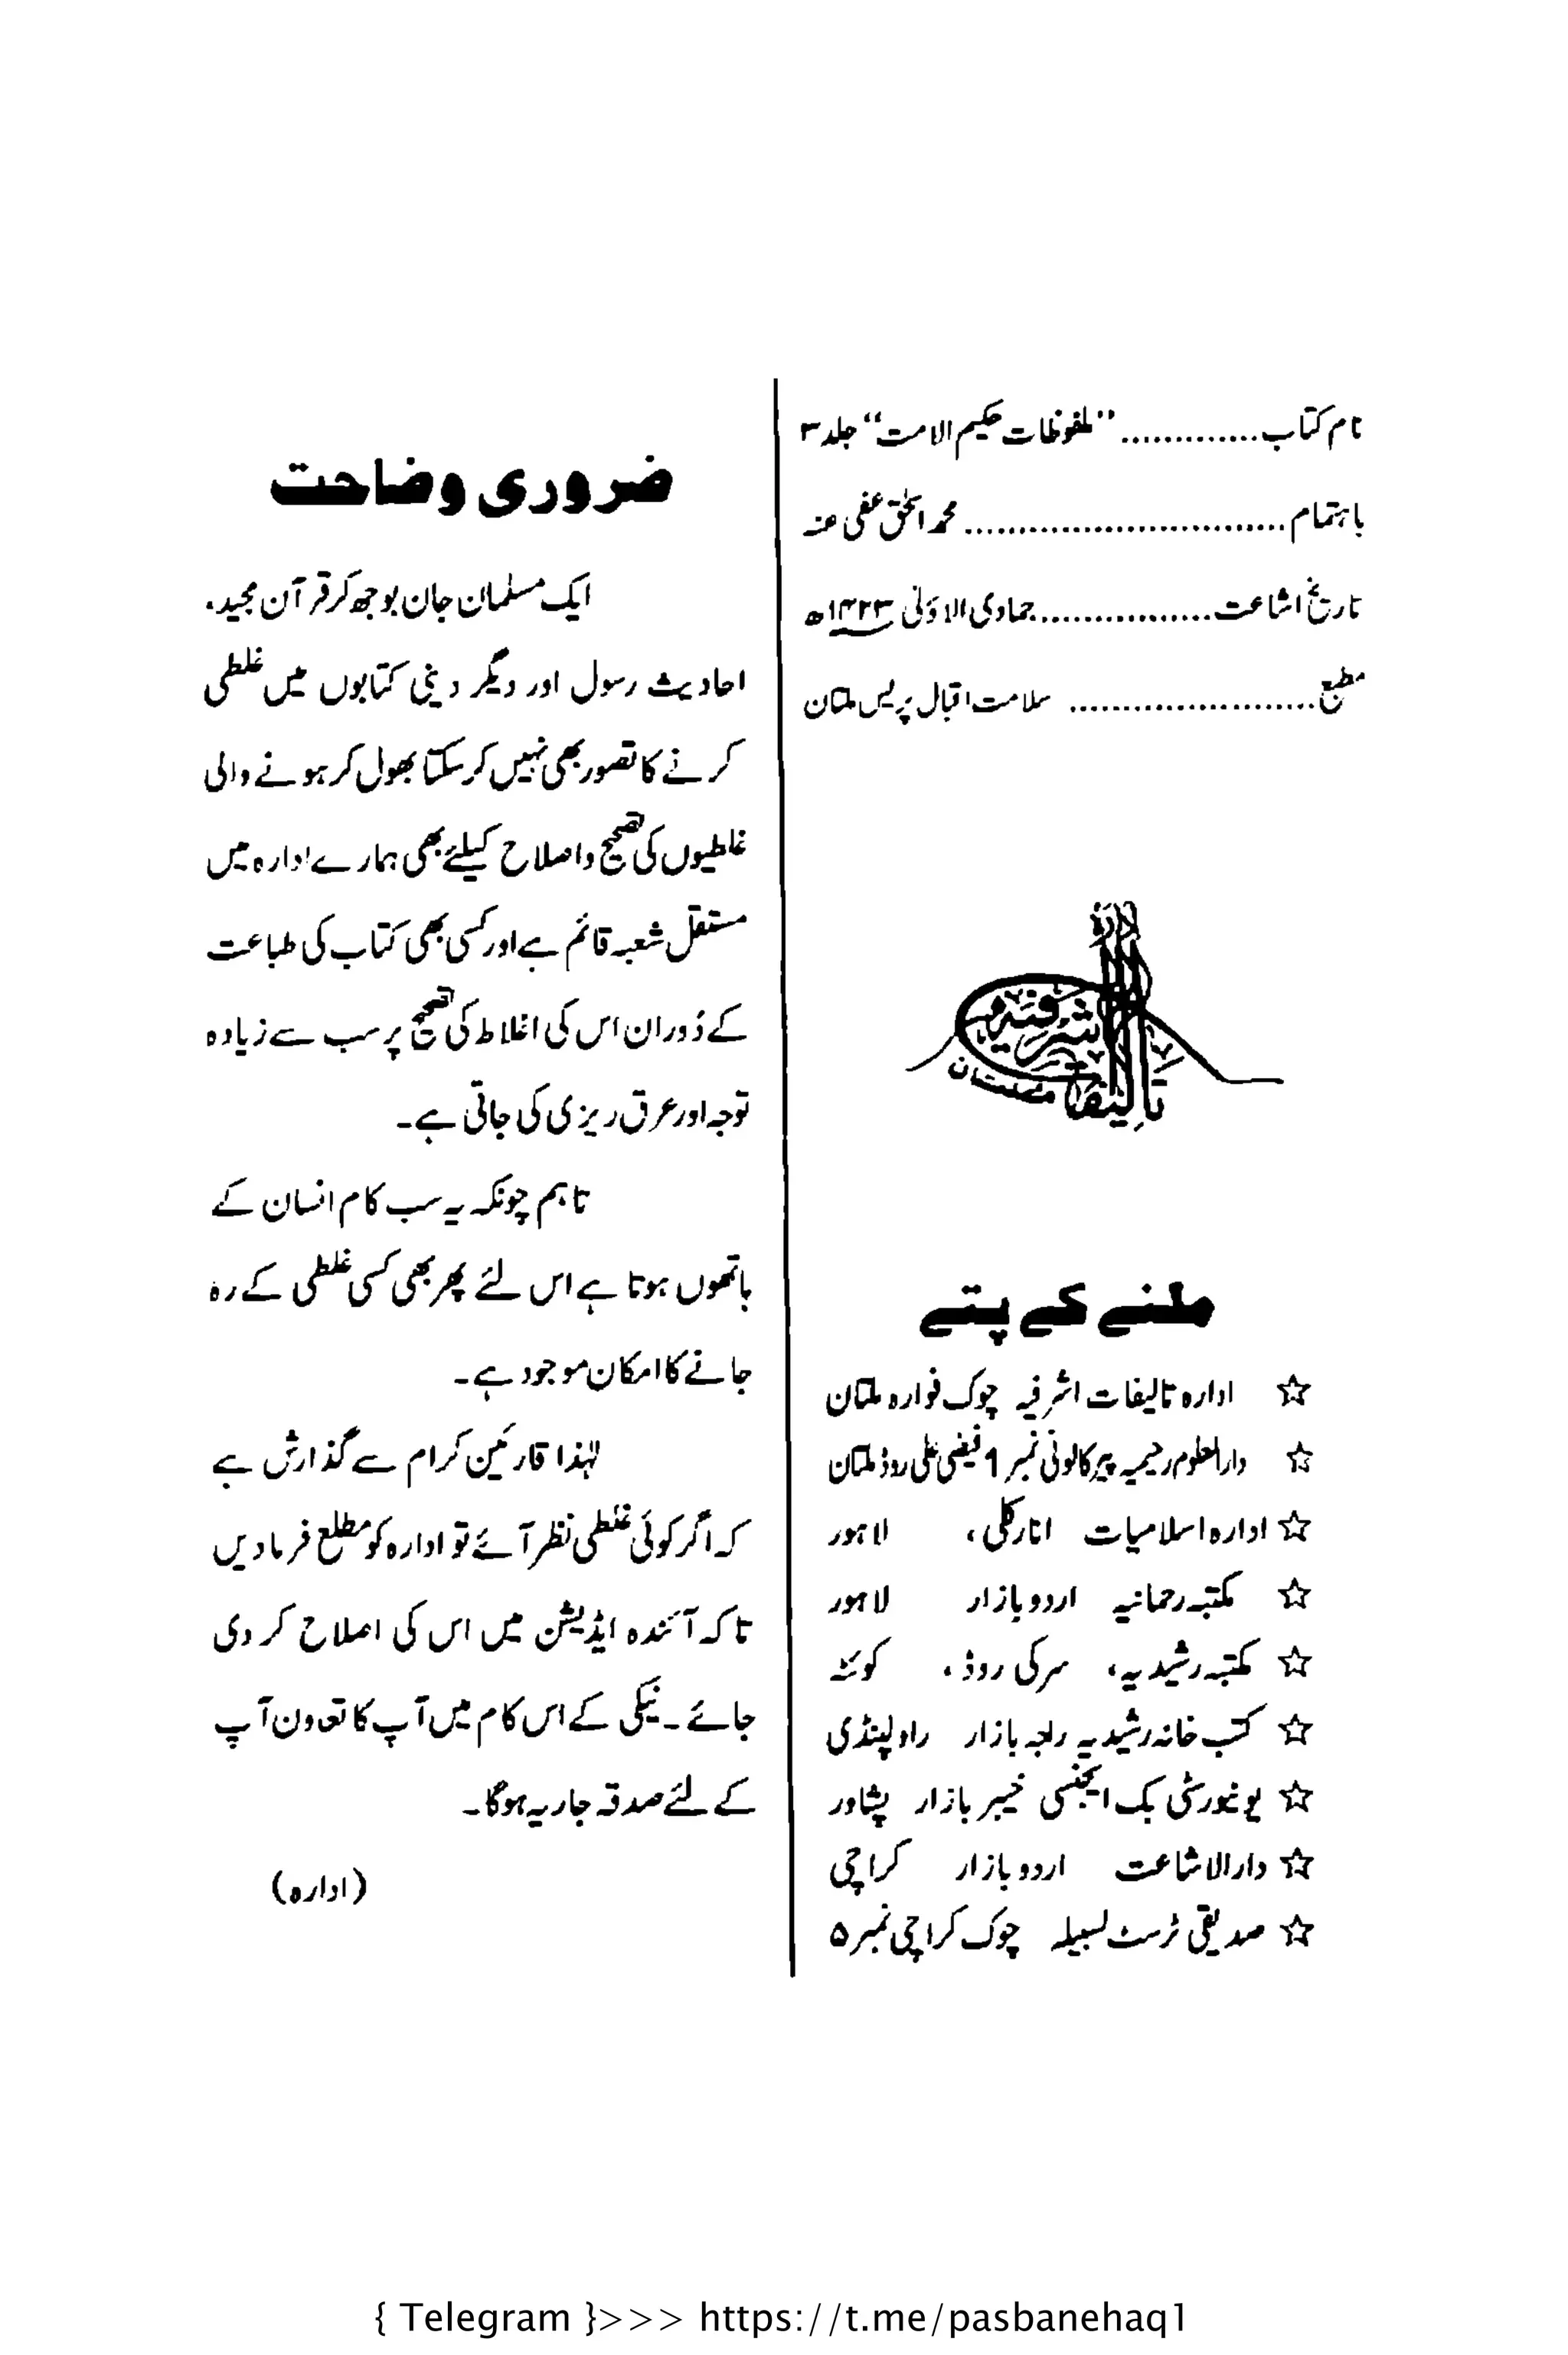 نام کتاب............."ملفوظات حکیم الامت" جلد ۳
باہتمام..............................محمد اسحٰق عفی عنہ
تاریخ اشاعت................جمادی الاوّلی ۱۴۲۳ھ
مطبع....................... سلامت اقبال پریس ملتان
ادارہ
تالیفات
اشرفیہ
ملتان
ملنے کے پتے
☆ ادارہ تالیفات اشرفیہ چوک فوارہ ملتان
☆ دارالعلوم رحیمیہ پیر کالونی نمبر 1 فیضی علی روڈ ملتان
☆ ادارہ اسلامیات انارکلی، لاہور
☆ مکتبہ رحمانیہ اردو بازار لاہور
☆ مکتبہ رشیدیہ، سرکی روڈ، کوئٹہ
☆ کتب خانہ رشیدیہ راجہ بازار راولپنڈی
☆ یونیورسٹی بک ایجنسی خیبر بازار پشاور
☆ دارالاشاعت اردو بازار کراچی
☆ صدیقی ٹرسٹ لسبیلہ چوک کراچی نمبر ۵
ضروری وضاحت
ایک مسلمان جان بوجھ کر قرآن مجید،
احادیث رسول اور دیگر دینی کتابوں میں غلطی
کرنے کا تصور بھی نہیں کر سکتا بھول کر ہونے والی
غلطیوں کی تصحیح و اصلاح کیلئے بھی ہمارے ادارہ میں
مستقل شعبہ قائم ہے اور کسی بھی کتاب کی طباعت
کے دوران اس کی اغلاط کی تصحیح پر سب سے زیادہ
توجہ اور عرق ریزی کی جاتی ہے۔
تاہم چونکہ یہ سب کام انسان کے
ہاتھوں ہوتا ہے اس لئے پھر بھی کسی غلطی کے رہ
جانے کا امکان موجود ہے۔
لہٰذا قارئین کرام سے گذارش ہے
کہ اگر کوئی غلطی نظر آئے تو ادارہ کو مطلع فرما دیں
تاکہ آئندہ ایڈیشن میں اس کی اصلاح کر دی
جائے۔ نیکی کے اس کام میں آپ کا تعاون آپ
کے لئے صدقہ جاریہ ہوگا۔
(ادارہ)
{ Telegram }>>> https://t.me/pasbanehaq1